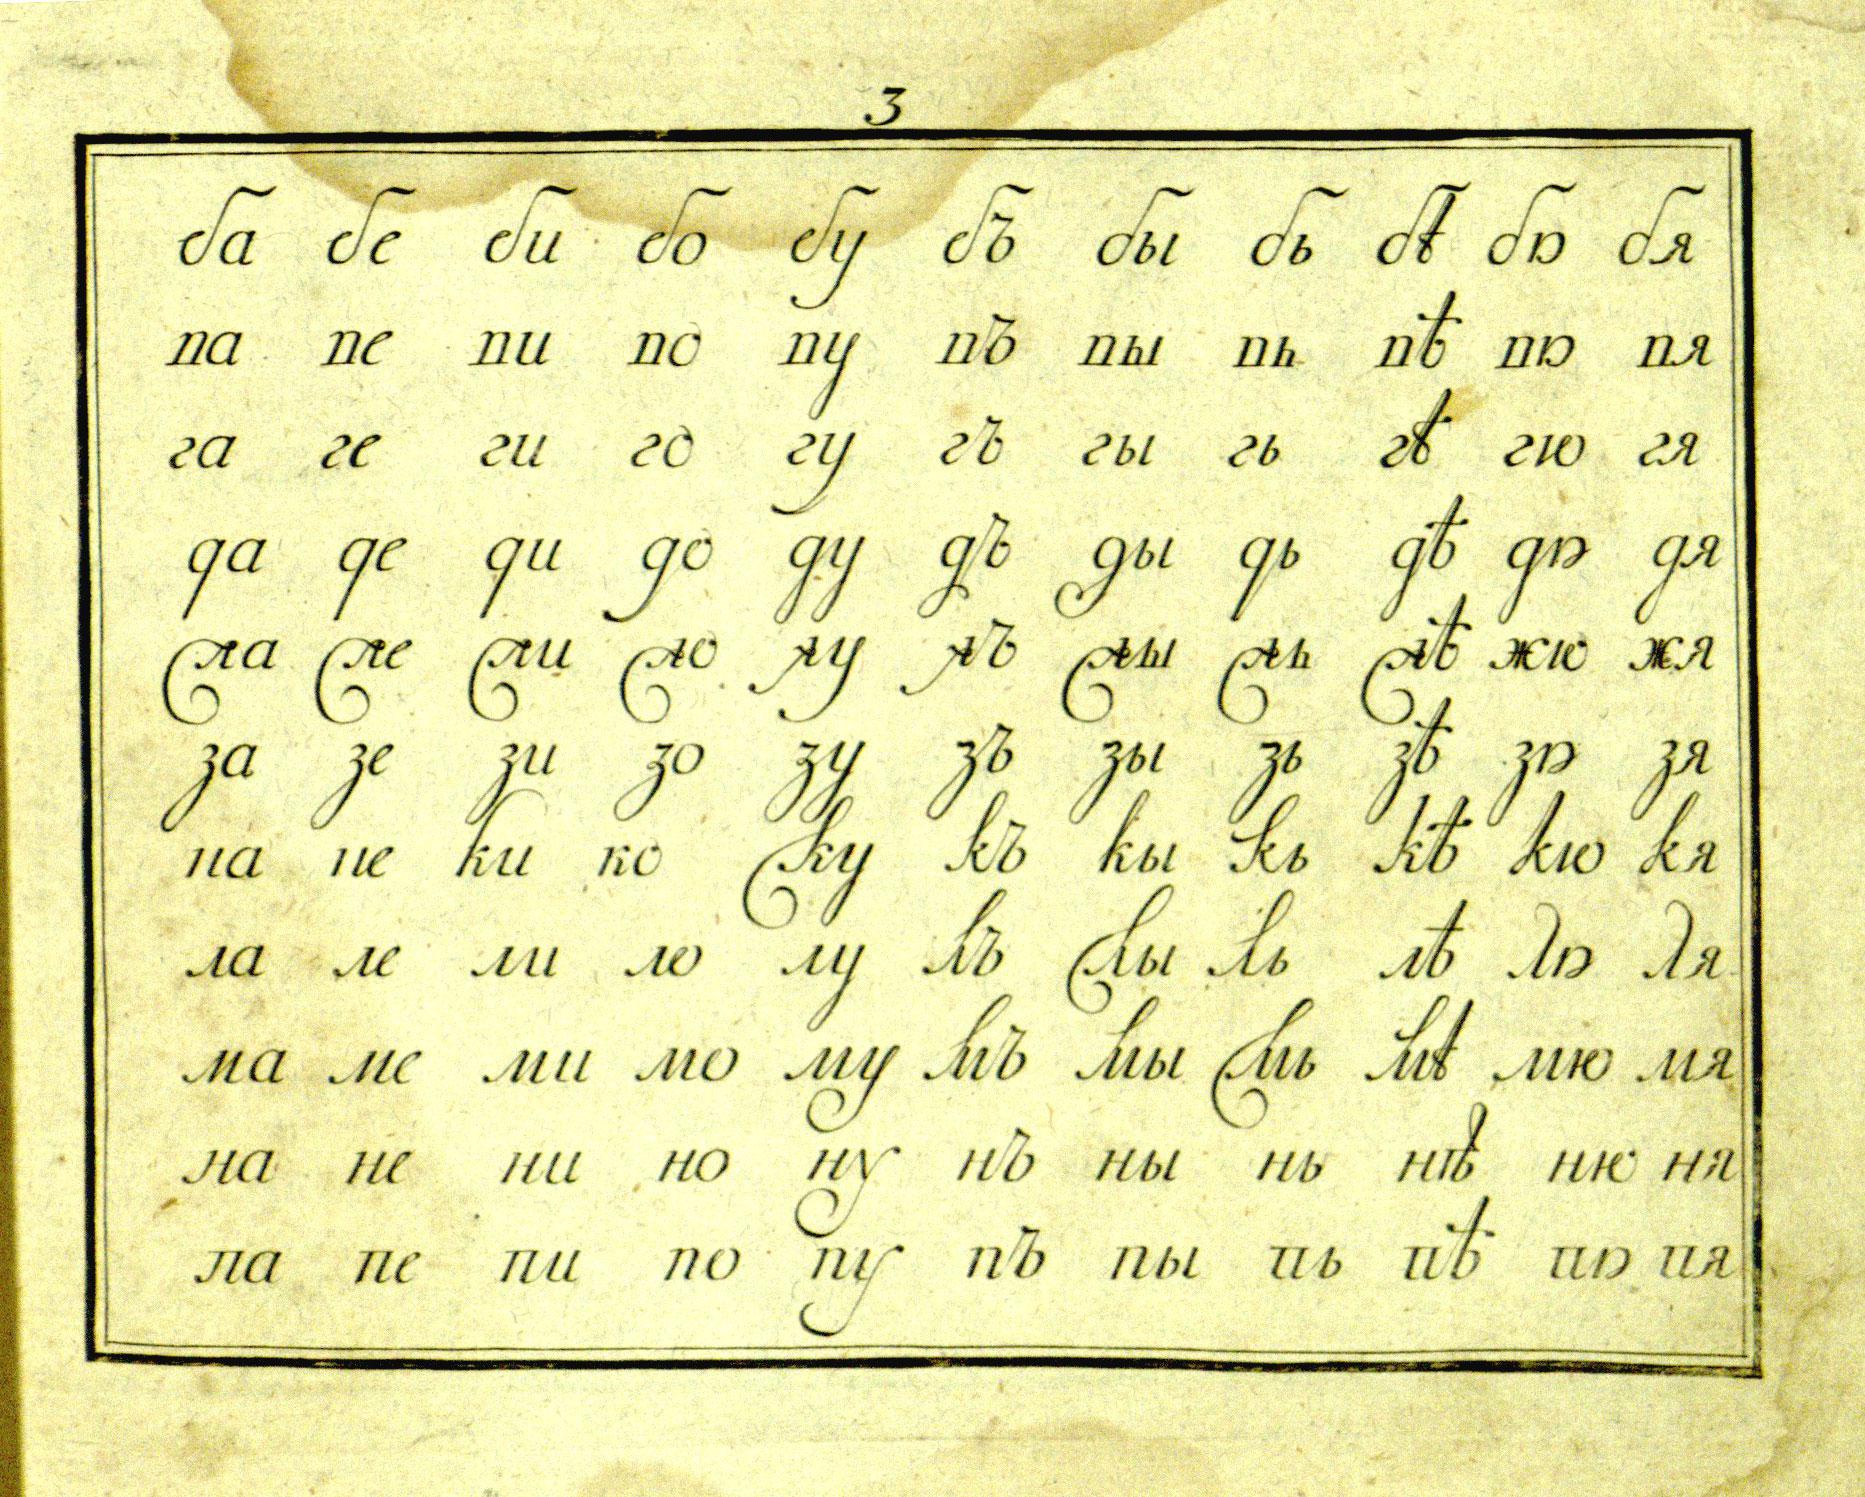 3
ба бе би бо бу бъ бы бь бѣ бю бя
ва ве ви во ву въ вы вь вѣ вю вя
га ге ги го гу гъ гы гь гѣ гю гя
да де ди до ду дъ ды дь дѣ дю дя
жа же жи жо жу жъ жы жь жѣ жю жя
за зе зи зо зу зъ зы зь зѣ зю зя
ка ке ки ко ку къ кы кь кѣ кю кя
ла ле ли ло лу лъ лы ль лѣ лю ля
ма ме ми мо му мъ мы мь мѣ мю мя
на не ни но ну нъ ны нь нѣ ню ня
па пе пи по пу пъ пы пь пѣ пю пя